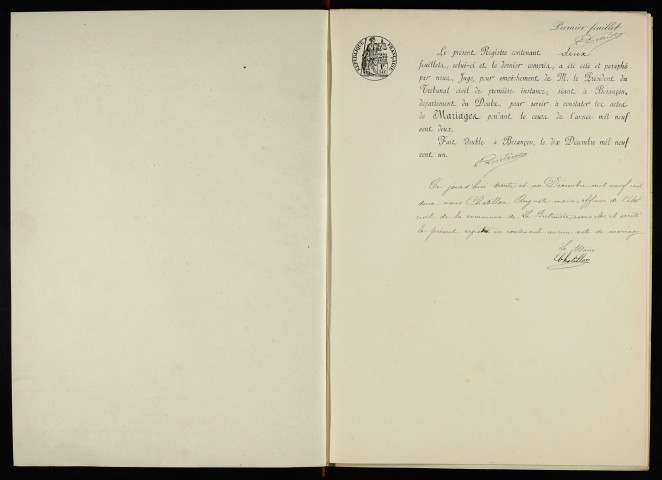 Premier feuillet
RÉPUBLIQUE FRANÇAISE
Le présent Registre contenant deux
feuillets, celui-ci et le dernier compris, a été coté et paraphé
par nous, Juge, pour empêchement de M. le Président du
Tribunal civil de première instance, séant à Besançon,
département du Doubs, pour servir à constater les actes
de Mariages pendant le cours de l'année mil neuf
cent deux.
Fait double à Besançon, le dix Décembre mil neuf
cent un.
Ce jourd'hui trente et un Décembre mil neuf cent
deux nous Chatillon Auguste maire, officier de l'état
civil de la commune de La avons clos et arrêté
le présent registre ne contenant aucun acte de mariage
Le Maire
Chatillon